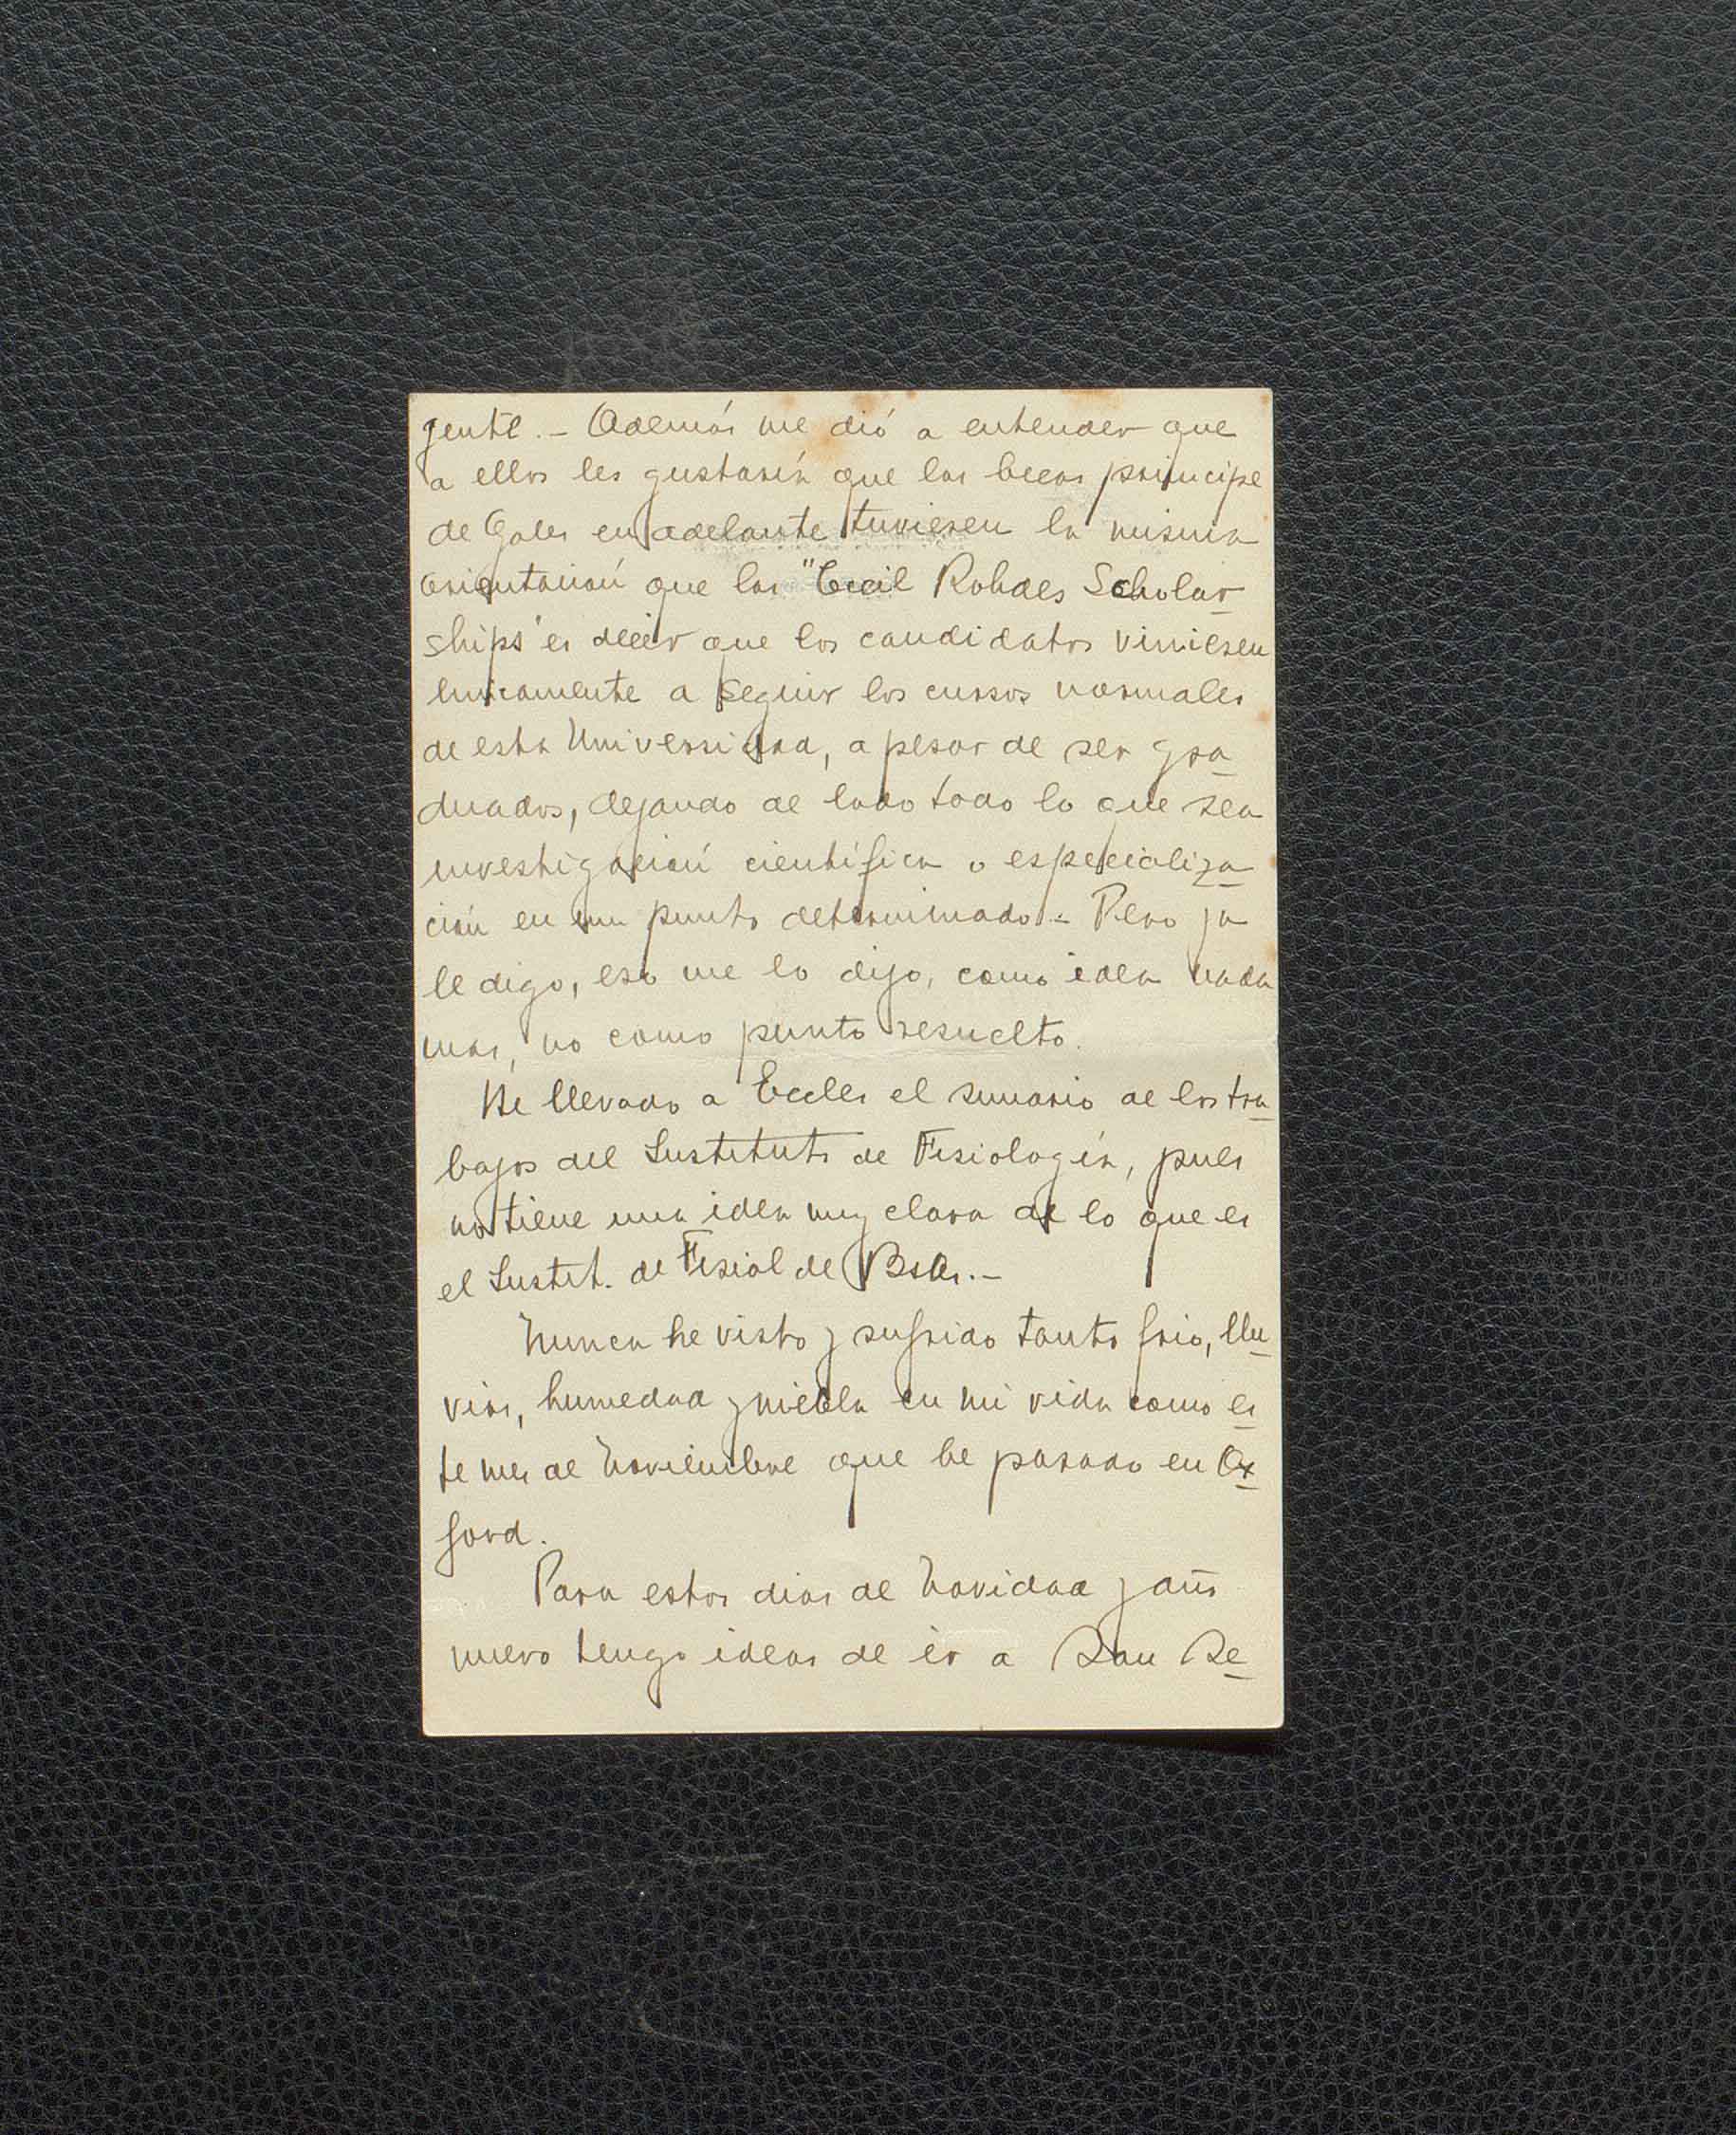 gente. – Además me dió a entender que
a ellos les gustaría que las becas principe
de Gales en adelante tuviesen la misma
orientación que las "Cecil Rohdes Scholar
ships" es decir que los candidatos viniesen
unicamente a seguir los cursos normales
de esta Universidad, a pesar de ser gra
duados, dejando de lado todo lo que sea
investigación científica o especializa
ción en un punto determinado. – Pero ya
le digo, eso me lo dijo, como idea nada
mas, no como punto resuelto.
He llevado a Eccles el sumario de los tra
bajos del Instituto de Fisiología, pues
no tiene una idea muy clara de lo que es
el Instit. de Fisiol de BsAs. –
Nunca he visto y sufrido tanto frio, llu
vias, humedad y niebla en mi vida como es
te mes de Noviembre que he pasado en Ox
ford.
Para estos dias de Navidad y año
nuevo tengo ideas de ir a San Se